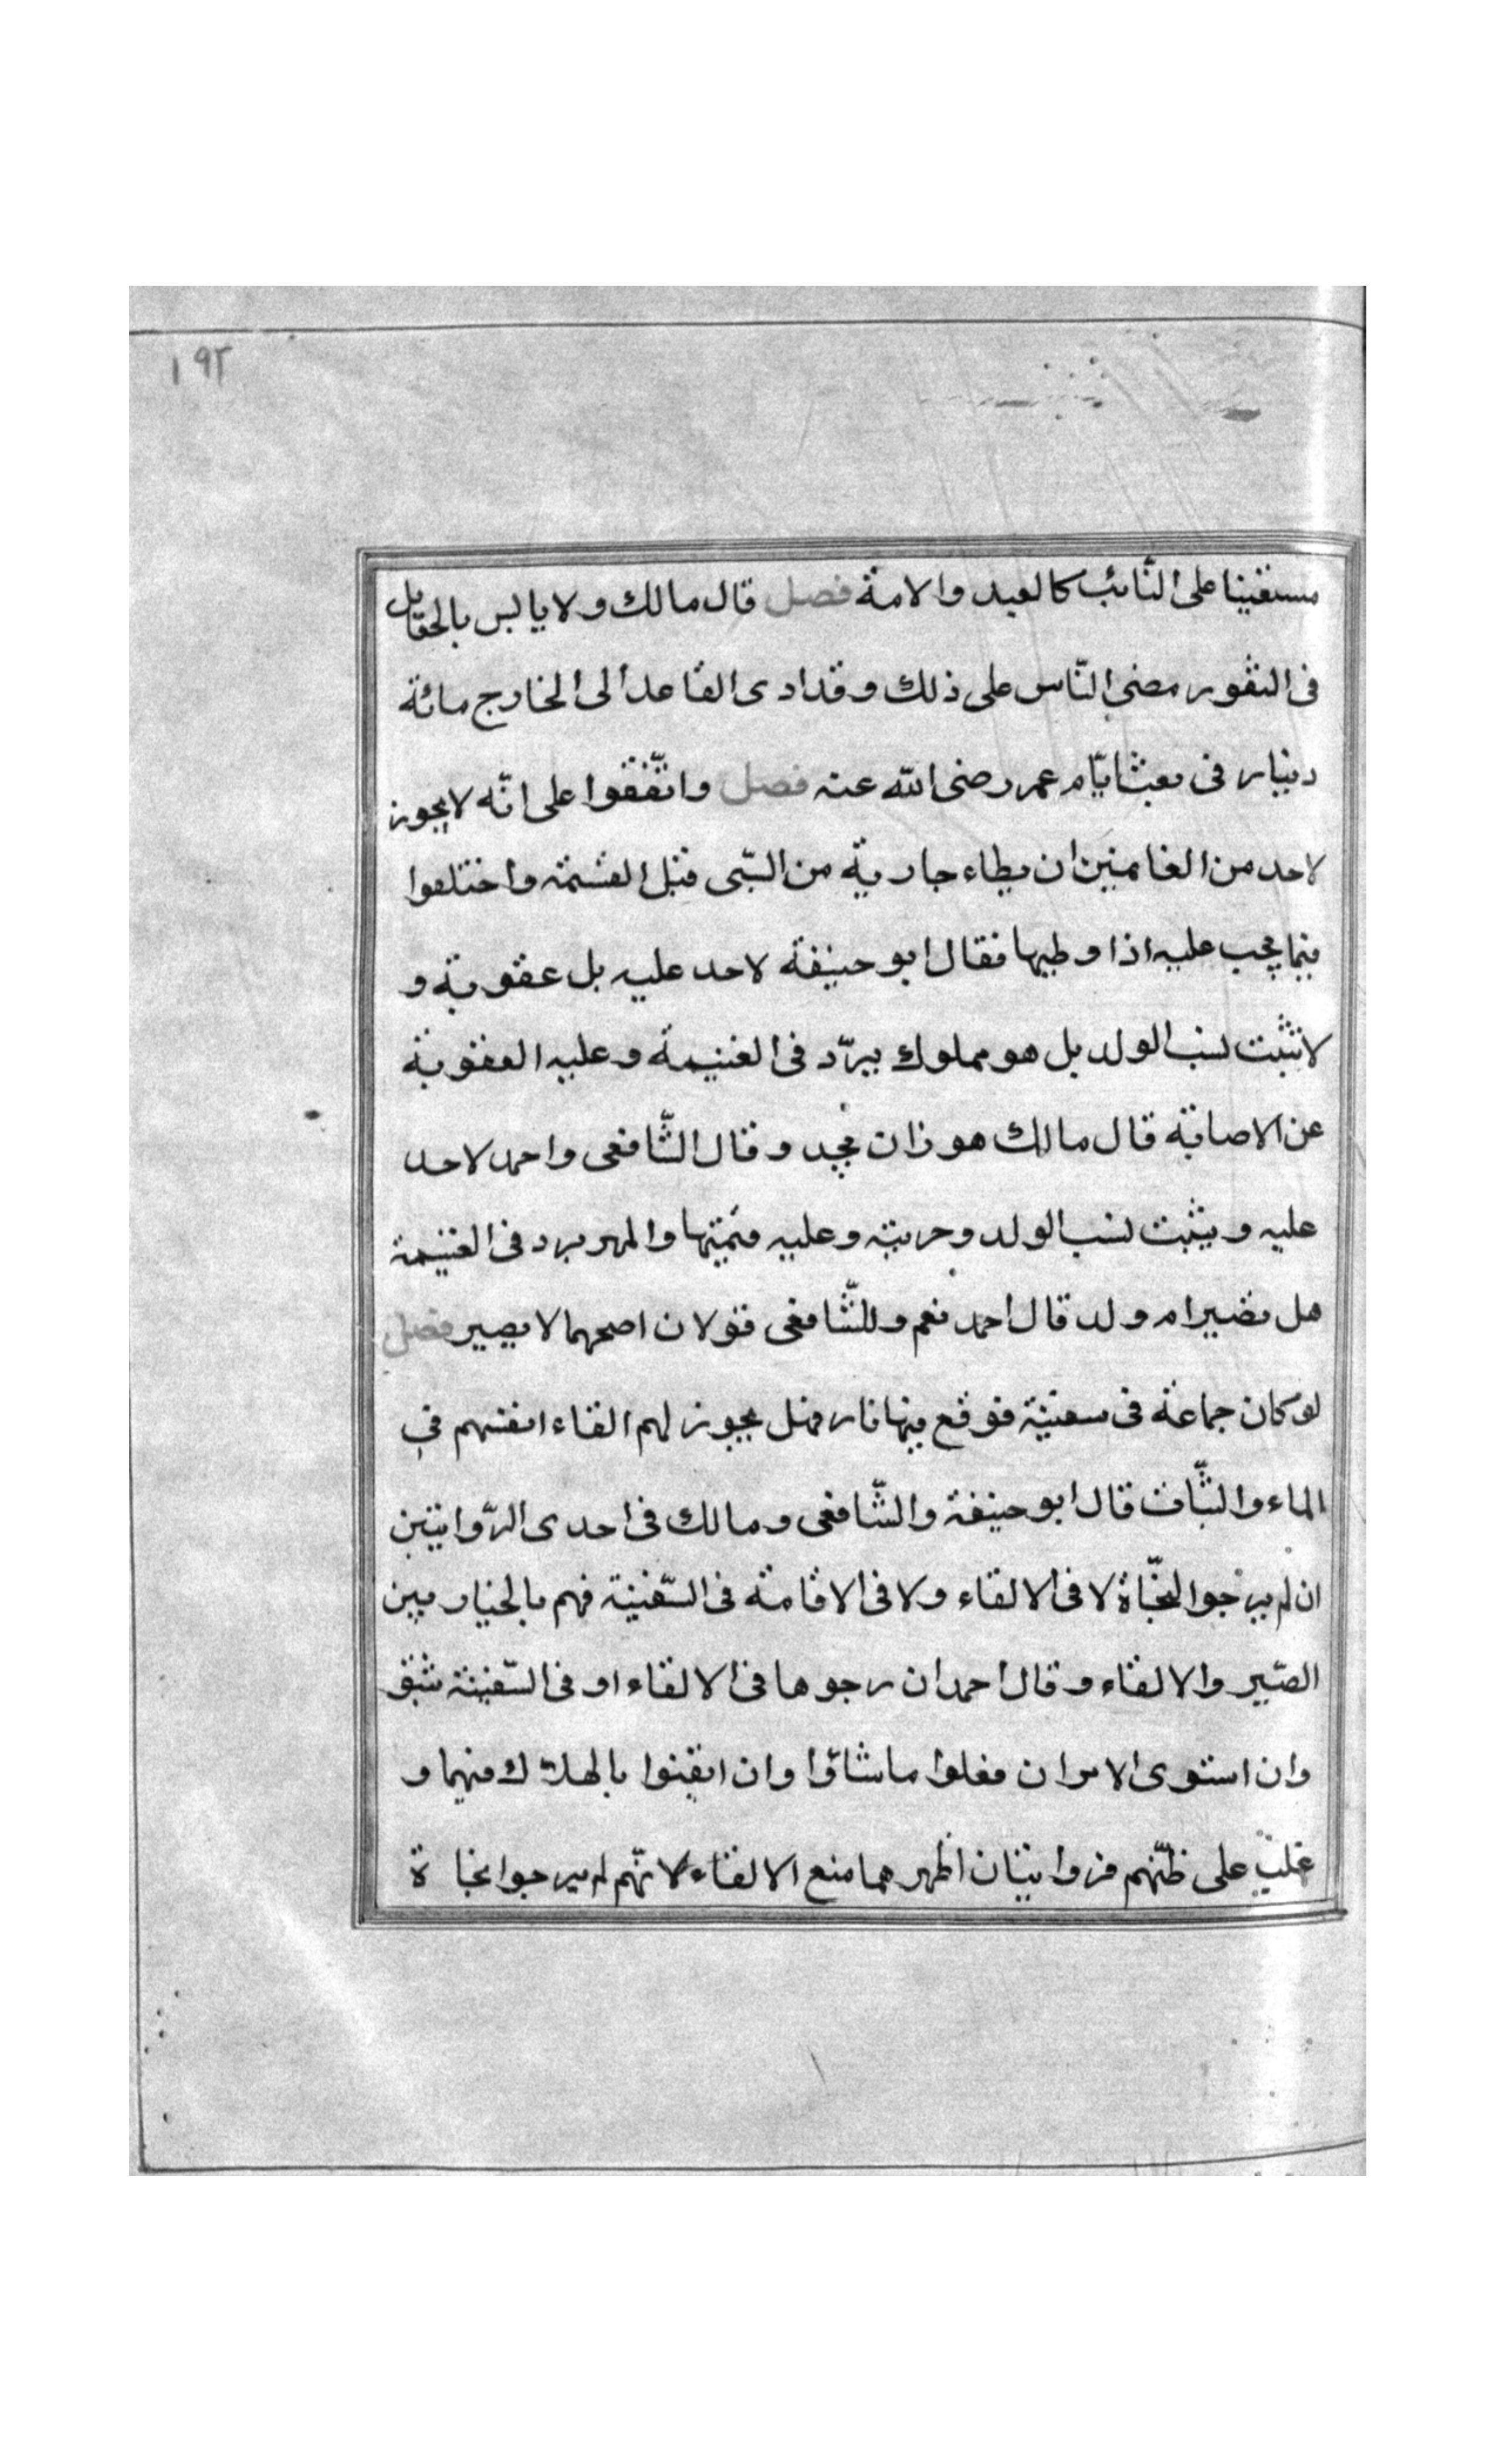 ١٩٢
مستغنيا على النّائب كالعبد والامة فصل قال مالك ولا يابس بالجعايل
فى الثغور مضى النّاس على ذلك وقد ادى القاعد الى الخارج مائة
دينار فى بعث ايّام عمر رضى الله عنه فصل واتّفقوا على انّه لا يجوز
لاحد من الغانمين ان يطاء جارية من السّبى قبل القسمة واختلفوا
فيما يجب عليه اذا وطيها فقال ابو حنيفة لا حد عليه بل عقوبة و
لا تثبت نسب الولد بل هو مملوك يردّ فى الغنيمة وعليه العقوبة
عن الاصابة قال مالك هو زان يحد وقال الشّافعى واحمد لا حد
عليه ويثبت نسب الولد وحريته وعليه قيمتها والمهر يرد فى الغنيمة
هل تصير ام ولد قال احمد نعم وللشّافعى قولان اصحهما لا يصير فصل
لو كان جماعة فى سفينة فوقع فيها نار فهل يجوز لهم القاء انفسهم فى
الماء والثّبات قال ابو حنيفة والشّافعى ومالك فى احدى الرّوايتين
ان لم يرجوا النجّاة لا فى الالقاء ولا فى الاقامة فى السّفينة فهم بالخيار بين
الصّبر والالقاء وقال احمد ان رجوها فى الالقاء او فى السّفينة
وان استوى الامران فعلوا ما شاؤا وان ايقنوا بالهلاك فيهما و
غلب على ظنّهم فروايتان اظهرهما منع الالقاء لانّهم لم يرجوا نجاة